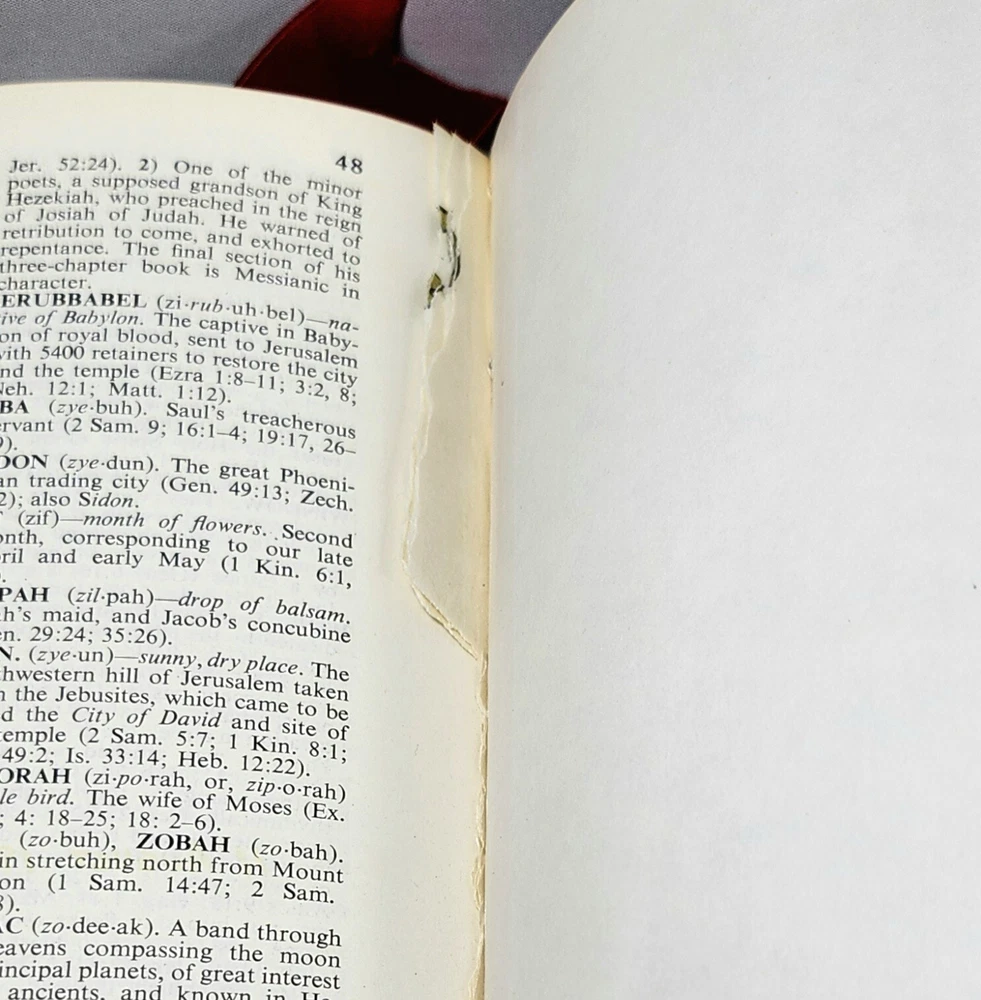 48
Jer. 52:24). 2) One of the minor
poets, a supposed grandson of King
Hezekiah, who preached in the reign
of Josiah of Judah. He warned of
retribution to come, and exhorted to
repentance. The final section of his
three-chapter book is Messianic in
character.
ERUBBABEL (zi·rub·uh·bel)—na-
ive of Babylon. The captive in Baby-
on of royal blood, sent to Jerusalem
with 5400 retainers to restore the city
nd the temple (Ezra 1:8–11; 3:2, 8;
Neh. 12:1; Matt. 1:12).
BA (zye·buh). Saul's treacherous
ervant (2 Sam. 9; 16:1–4; 19:17, 26–
9).
DON (zye·dun). The great Phoeni-
an trading city (Gen. 49:13; Zech.
2); also Sidon.
(zif)—month of flowers. Second
onth, corresponding to our late
ril and early May (1 Kin. 6:1,
).
PAH (zil·pah)—drop of balsam.
h's maid, and Jacob's concubine
en. 29:24; 35:26).
N. (zye·un)—sunny, dry place. The
thwestern hill of Jerusalem taken
n the Jebusites, which came to be
d the City of David and site of
temple (2 Sam. 5:7; 1 Kin. 8:1;
49:2; Is. 33:14; Heb. 12:22).
ORAH (zi·po·rah, or, zip·o·rah)
le bird. The wife of Moses (Ex.
; 4: 18–25; 18: 2–6).
(zo·buh), ZOBAH (zo·bah).
in stretching north from Mount
on (1 Sam. 14:47; 2 Sam.
8).
AC (zo·dee·ak). A band through
eavens compassing the moon
incipal planets, of great interest
ancients, and known in He-